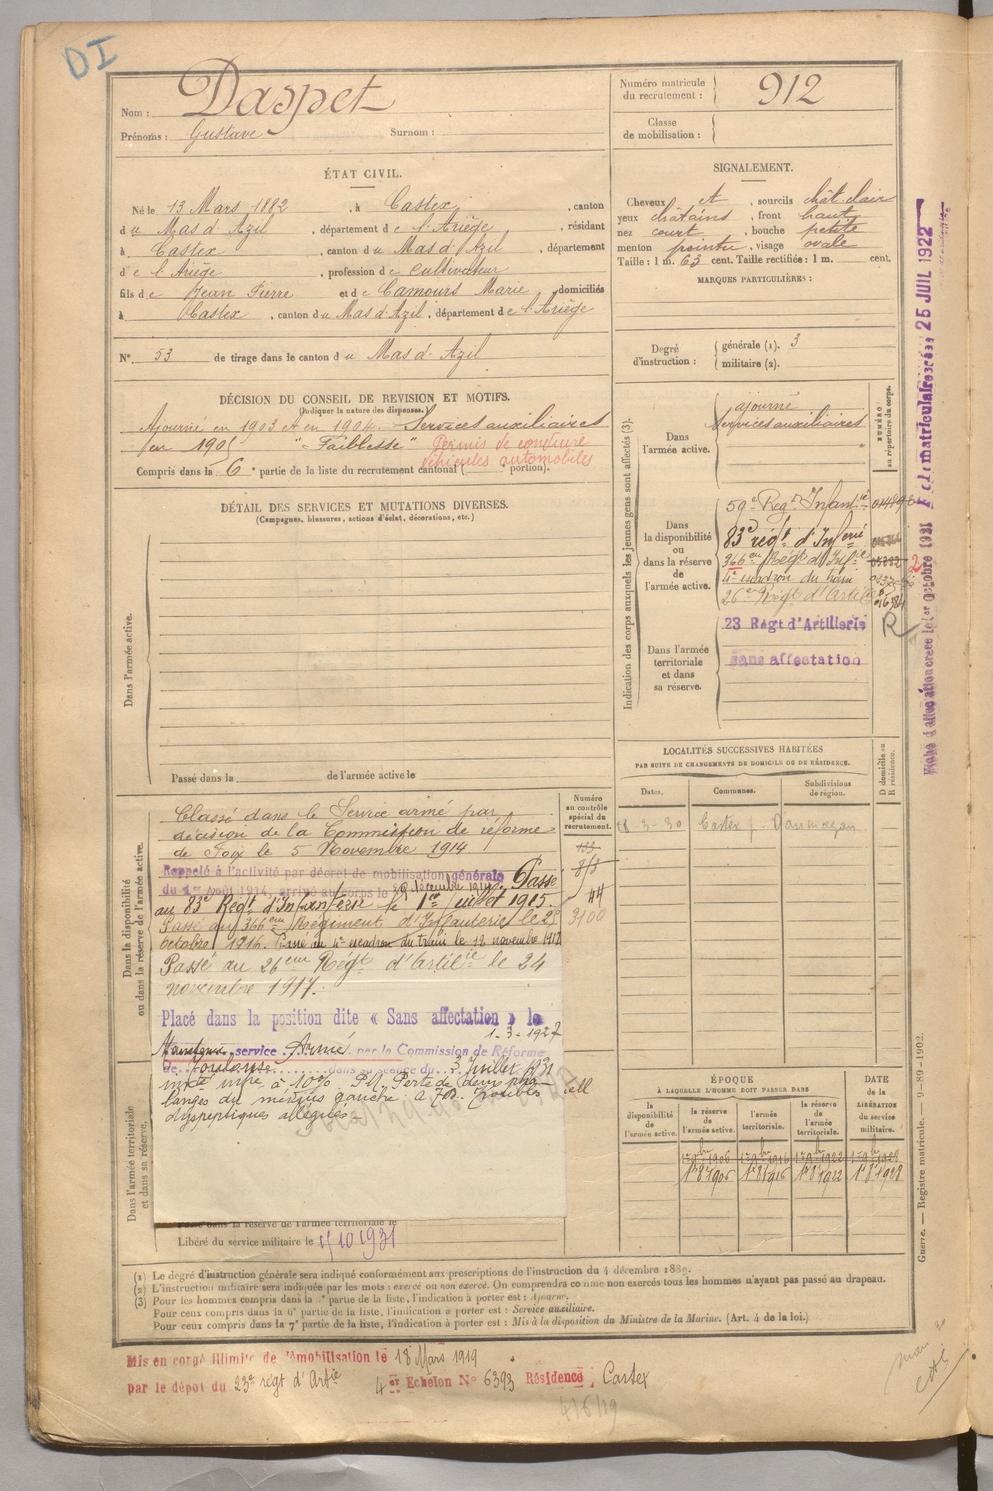 DI
Nom : Daspet
Prénoms : Gustave Surnom :
Numéro matricule du recrutement : 912
Classe de mobilisation :
ÉTAT CIVIL.
Né le 13 Mars 1882, à Castex, canton
du Mas d'Azil, département de l'Ariège, résidant
à Castex, canton du Mas d'Azil, département
de l'Ariège, profession de Cultivateur
fils de Jean Pierre et de Camours Marie, domiciliés
à Castex, canton du Mas d'Azil, département de l'Ariège
N° 53 de tirage dans le canton du Mas d'Azil
SIGNALEMENT.
Cheveux et, sourcils chât clair
yeux châtains, front haut
nez court, bouche petite
menton pointu, visage ovale
Taille : 1 m. 63 cent. Taille rectifiée : 1 m. cent.
MARQUES PARTICULIÈRES :
Degré d'instruction : générale (1). 3
militaire (2).
DÉCISION DU CONSEIL DE REVISION ET MOTIFS.
(Indiquer la nature des dispenses.)
Ajourné en 1903 et en 1904. Services auxiliaires
en 1905 "Faiblesse" Permis de conduire
véhicules automobiles
Compris dans la 6e partie de la liste du recrutement cantonal ( portion).
DÉTAIL DES SERVICES ET MUTATIONS DIVERSES.
(Campagnes, blessures, actions d'éclat, décorations, etc.)
Dans l'armée active.
Passé dans la de l'armée active le
Indication des corps auxquels les jeunes gens sont affectés (3).
NUMÉRO au répertoire du corps.
Dans l'armée active.
ajourné
Services auxiliaires
Dans la disponibilité ou dans la réserve de l'armée active.
59e Regt Infanterie
83e régt d'Inferie
366eme Régt d'Infie
4e escadron du train
26eme Régt d'Artil
R
Dans l'armée territoriale et dans sa réserve.
23 Régt d'Artillerie
sans affectation
LOCALITÉS SUCCESSIVES HABITÉES
PAR SUITE DE CHANGEMENTS DE DOMICILE OU DE RÉSIDENCE.
D domicile ou R résidence.
Dates. Communes. Subdivisions de région.
3-30 Castex Daumazan
Dans la disponibilité ou dans la réserve de l'armée active.
Numéro au contrôle spécial du recrutement.
Classé dans le Service armé par
décision de la Commission de réforme
de Foix le 5 Novembre 1914.
Rappelé à l'activité par décret de mobilisation générale
du 1er Août 1914, arrivé au corps le décembre 1914. Passé
au 83e Regt d'Infanterie le 1er juillet 1915.
Passé au 366eme Régiment d'Infanterie le 25
octobre 1916. Passé au 4e escadron du train le 12 novembre 1917
Passé au 26eme Régt d'artilie le 24
novembre 1917.
44
3100
Placé dans la position dite « Sans affectation » le
1-3-1927
Maintenu service Armé par la Commission de Réforme
de Toulouse dans sa séance du 3 Juillet 1931
Perte de deux phalanges
du médius gauche. Troubles
dyspeptiques allégués.
Dans l'armée territoriale et dans sa réserve.
Passé dans la réserve de l'armée territoriale le
Libéré du service militaire le 15/10/1931
ÉPOQUE
À LAQUELLE L'HOMME DOIT PASSER DANS
DATE de la LIBÉRATION du service militaire.
la disponibilité de l'armée active.
la réserve de l'armée active.
l'armée territoriale.
la réserve de l'armée territoriale.
1er 9bre 1906 1er 9bre 1916 1er 9bre 1922
1er 8bre 1905 1er 8 1916 1er 8 1922 1er 8 1928
(1) Le degré d'instruction générale sera indiqué conformément aux prescriptions de l'instruction du 4 décembre 1889.
(2) L'instruction militaire sera indiquée par les mots : exercé ou non exercé. On comprendra comme non exercés tous les hommes n'ayant pas passé au drapeau.
(3) Pour les hommes compris dans la partie de la liste, l'indication à porter est : Ajourné.
Pour ceux compris dans la 6e partie de la liste, l'indication à porter est : Service auxiliaire.
Pour ceux compris dans la 7e partie de la liste, l'indication à porter est : Mis à la disposition du Ministre de la Marine. (Art. 4 de la loi.)
Mis en congé illimité de démobilisation le 18 Mars 1919
par le dépôt du 23e régt d'Artie 4er Echelon N° 6393 Résidence : Castex
4/6/19
Guerre. — Registre matricule. — 9-89-1902.
Fiche d'affectation créée le 1er Octobre 1931
Fiche matriculaire créée 25 JUIL 1922